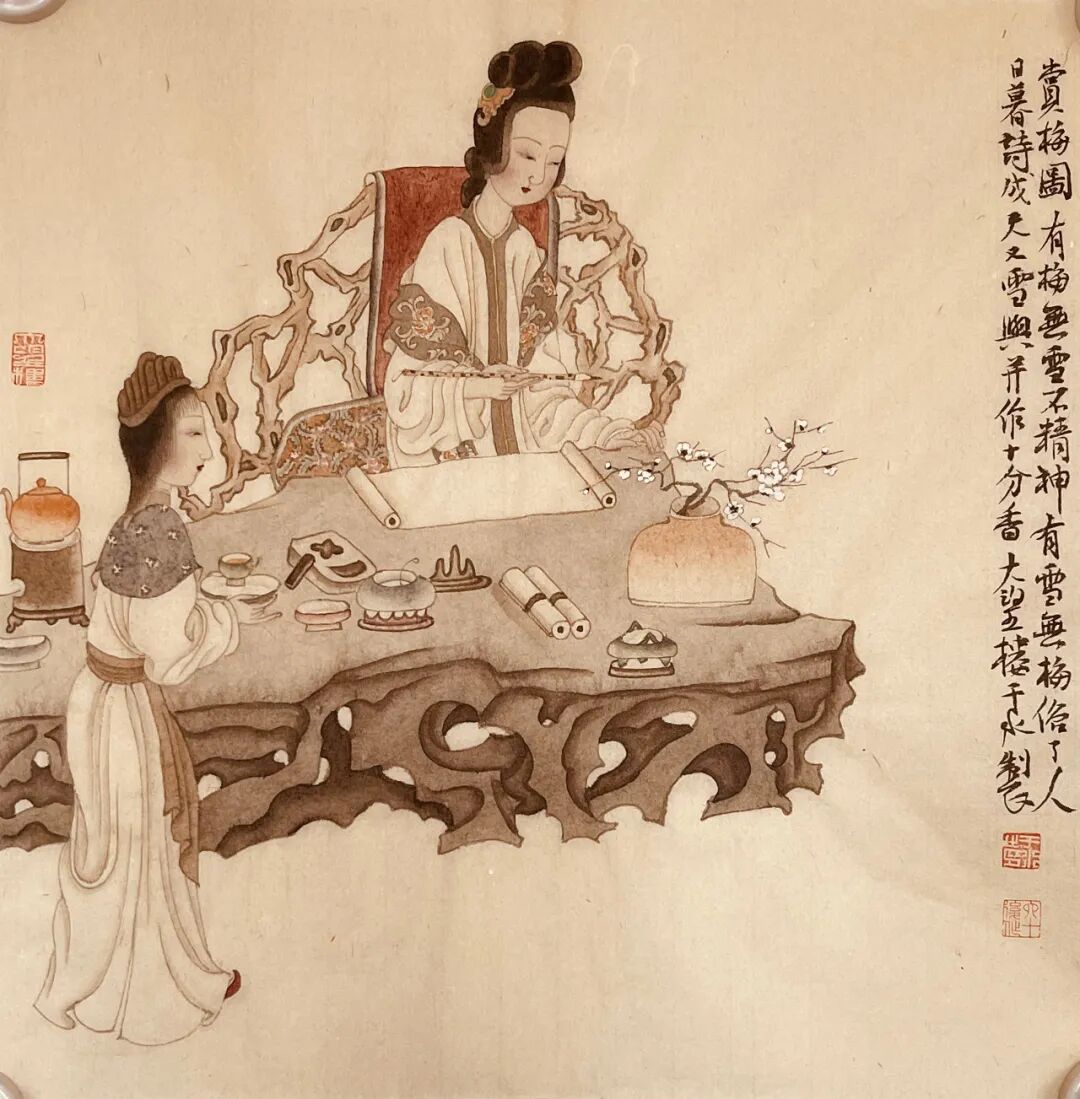 賞梅圖 有梅無雪不精神 有雪無梅俗了人
日暮詩成天又雪與并作十分香 大望樓于水製